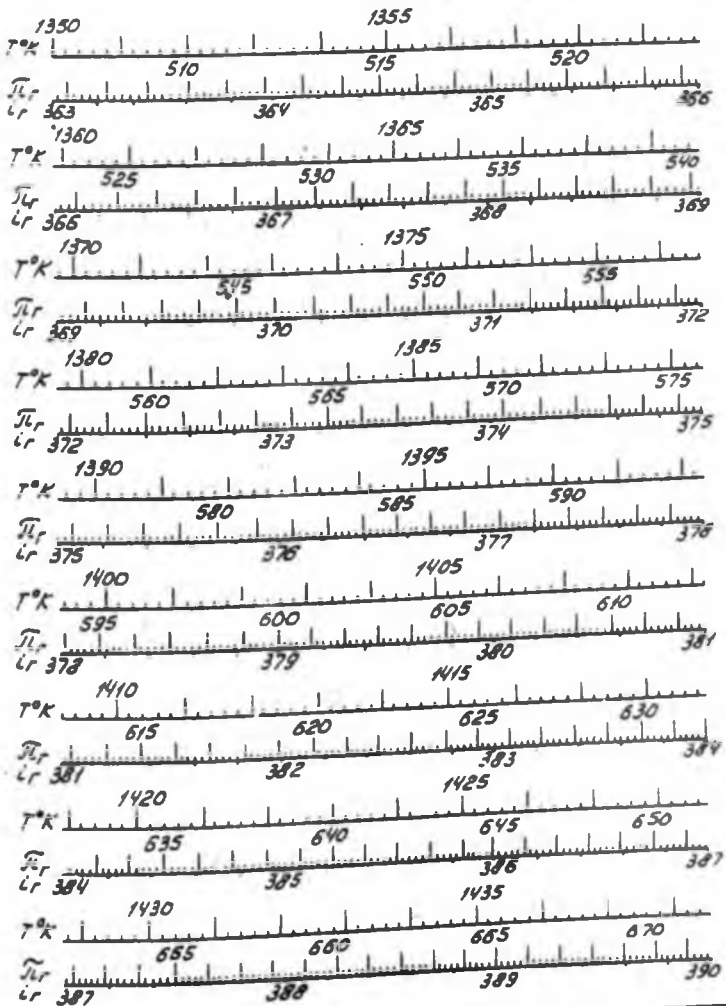 1350 1355
T°K
510 515 520
πr
ir 363 364 365 366
1360 1365
T°K
525 530 535 540
πr
ir 366 367 368 369
1370 1375
T°K
545 550 555
πr
ir 369 370 371 372
1380 1385
T°K
560 565 570 575
πr
ir 372 373 374 375
1390 1395
T°K
580 585 590
πr
ir 375 376 377 378
1400 1405
T°K
595 600 605 610
πr
ir 378 379 380 381
1410 1415
T°K
615 620 625 630
πr
ir 381 382 383 384
1420 1425
T°K
635 640 645 650
πr
ir 384 385 386 387
1430 1435
T°K
655 660 665 670
πr
ir 387 388 389 390